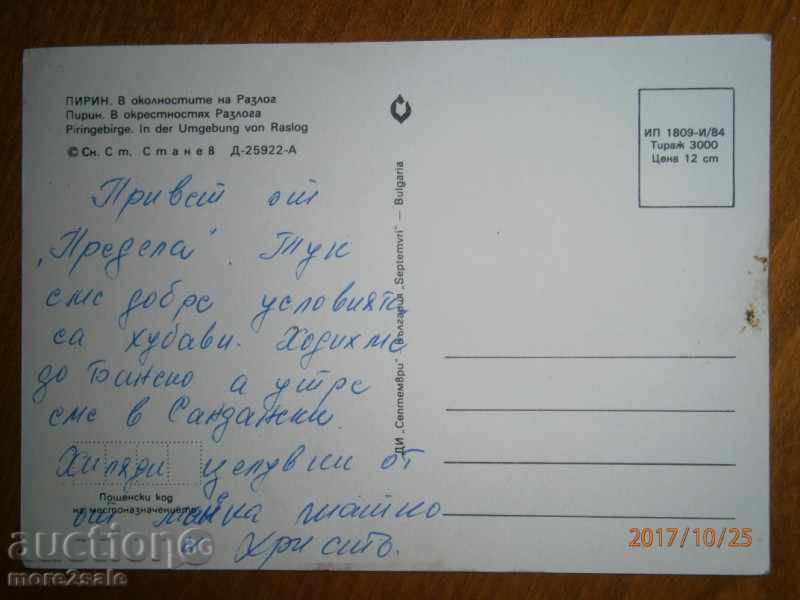 ПИРИН. В околностите на Разлог
Пирин. В окрестностях Разлога
Piringebirge. In der Umgebung von Raslog
© Сн. Ст. Станев Д-25922-А
Привет от
„Предела“. Тук
сме добре условията
са хубави. Ходихме
до Банско а утре
сме в Сандански.
Хиляди целувки от
от майка татко
и Христо.
Пощенски код
на местоназначението
ДИ „Септември“ — България „Septemvri“ — Bulgaria
ИП 1809-И/84
Тираж 3000
Цена 12 ст
2017/10/25
auction BG
more2sale